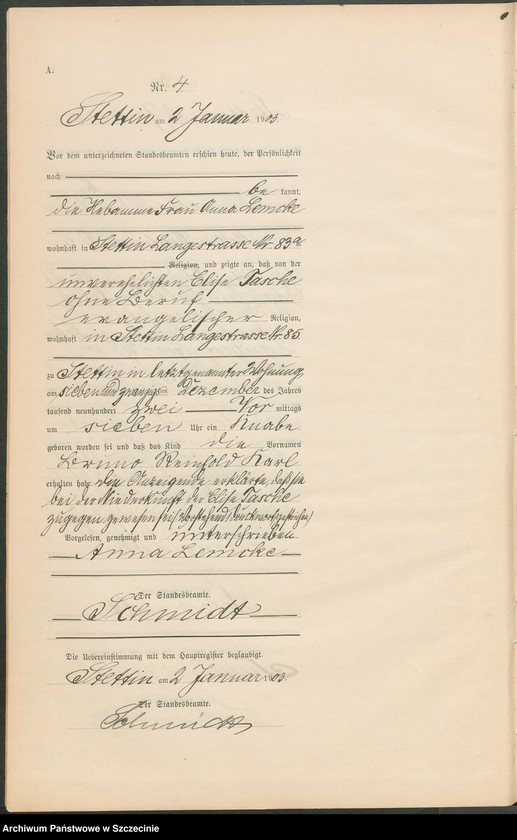 A.
Nr. 4
Stettin am 2 Januar 1903
Vor dem unterzeichneten Standesbeamten erschien heute, der Persönlichkeit
nach
be kannt,
die Hebamme Frau Anna Lemcke
wohnhaft in Stettin Langestrasse Nr. 83a
Religion, und zeigte an, daß von der
unverehelichten Elise Tasche
ohne Beruf
evangelischer Religion,
wohnhaft in Stettin Langestrasse Nr. 85
zu Stettin in letztgenannter Wohnung
am sieben und zwanzigsten Dezember des Jahres
tausend neunhundert zwei Vor mittags
um sieben Uhr ein Knabe
geboren worden sei und daß das Kind die Vornamen
Bruno Reinhold Karl
erhalten habe. Die Anzeigende erklärte, daß sie
bei der Niederkunft der Elise Tasche
zugegen gewesen sei. Vorstehend 1 Druckwort gestrichen
Vorgelesen, genehmigt und unterschrieben
Anna Lemcke
Der Standesbeamte.
Schmidt
Die Uebereinstimmung mit dem Hauptregister beglaubigt.
Stettin am 2 Januar 1903
Der Standesbeamte.
Schmidt
Archiwum Państwowe w Szczecinie